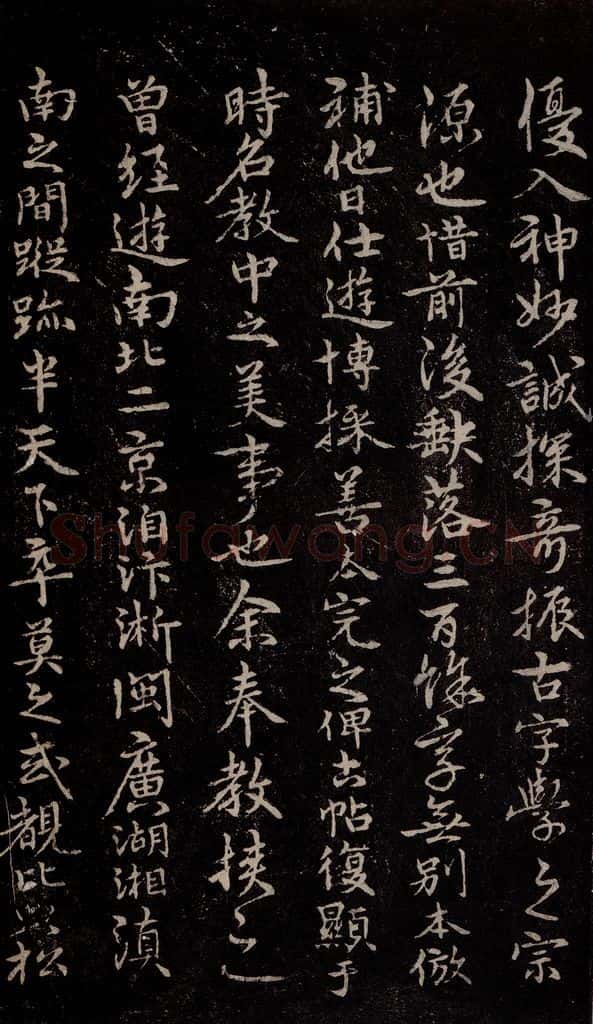 優入神妙誠探奇振古字學之宗
源也惜前後缺落三百餘字無別本倣
補他日仕遊博採善本完之俾古帖復顯于
時名教中之美事也余奉教挾之
曾經遊南北二京洎汴淅閩廣湖湘滇
南之間蹤跡半天下卒莫之或覩比以松
Shufawang.CN